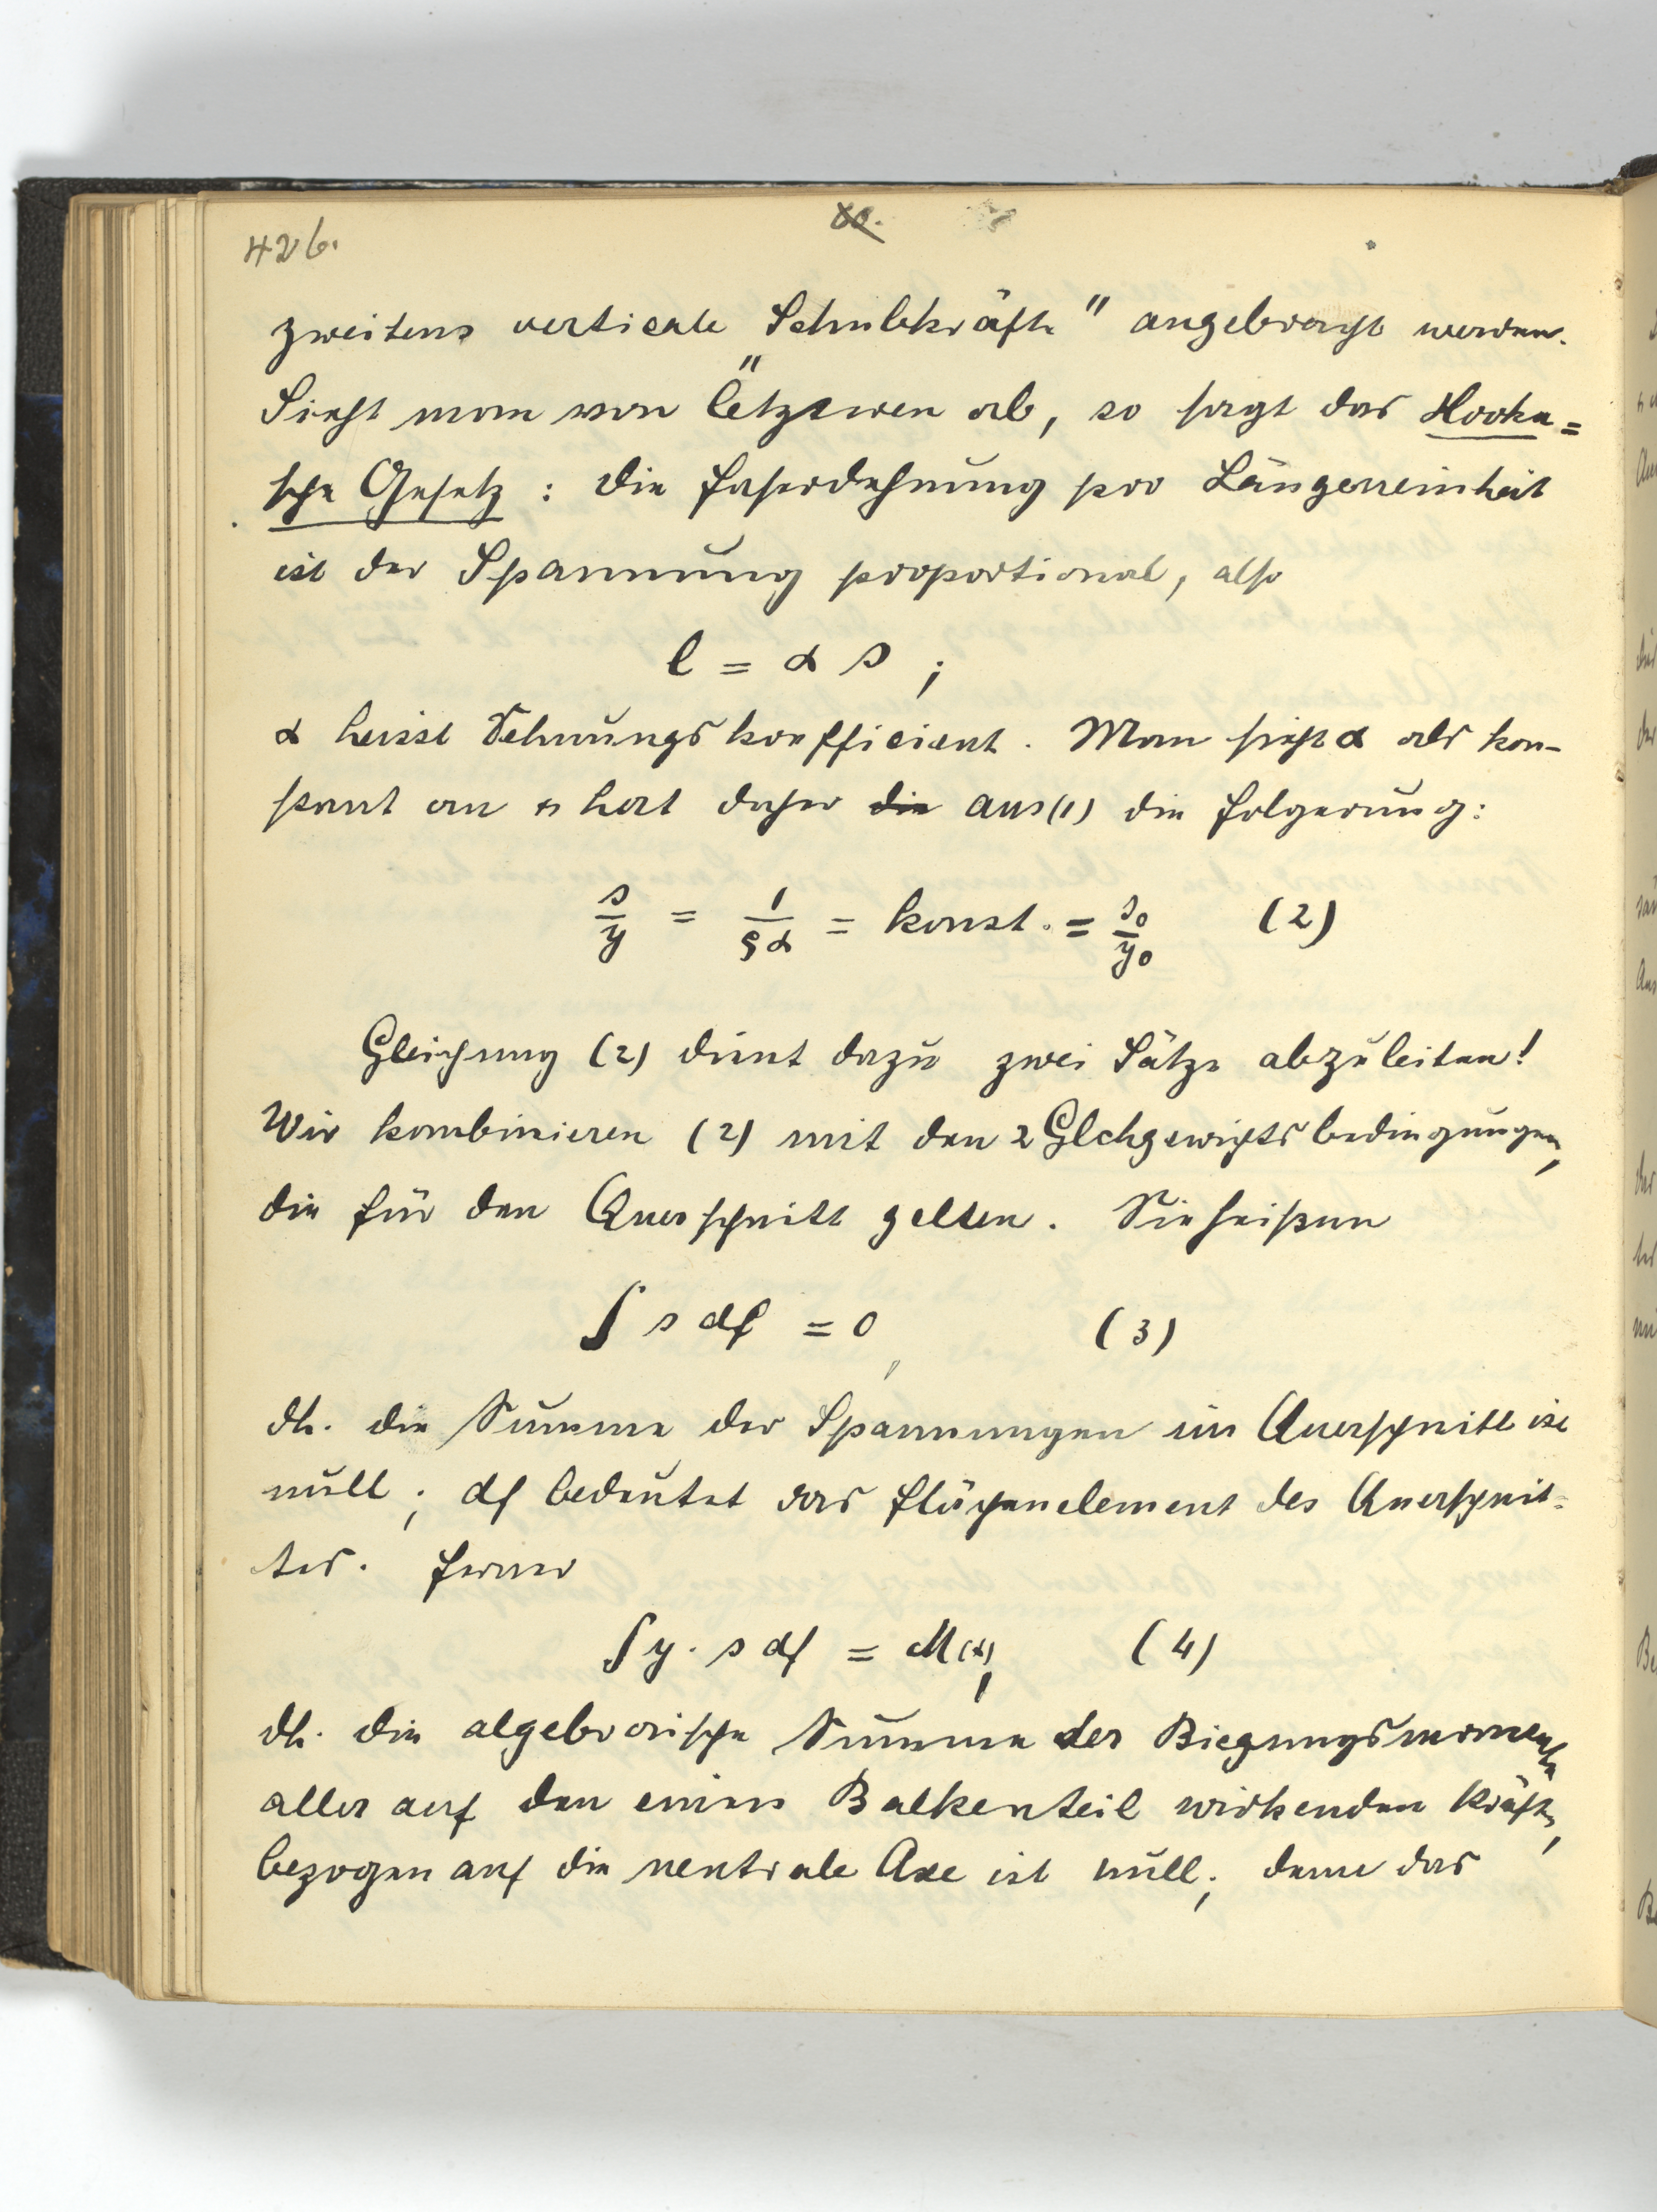 426.
zweitens verticale „Schubkräfte" angebracht werden.
Sieht man von letzteren ab, so sagt das Hooke=
sche Gesetz : die Faserdehnung pro Längeneinheit
ist der Spannung proportional, also
l = α s ;
α heisst Dehnungskoefficient. Man sieht α als kon-
stant an u hat daher die aus (1) die Folgerung:
s/y = 1/ρα = konst. = s₀/y₀ (2)
Gleichung (2) dient dazu zwei Sätze abzuleiten!
Wir kombinieren (2) mit den 2 Glchgewichtsbedingungen,
die für den Querschnitt gelten. Sie heißen
∫ s df = 0, (3)
dh. die Summe der Spannungen im Querschnitt ist
null; df bedeutet das Flächenelement des Querschnit-
tes. Ferner
∫ y · s df = M(x), (4)
dh. die algebraische Summe der Biegungsmomente
aller auf den einen Balkenteil wirkenden Kräfte,
bezogen auf die neutrale Axe ist null; denn das